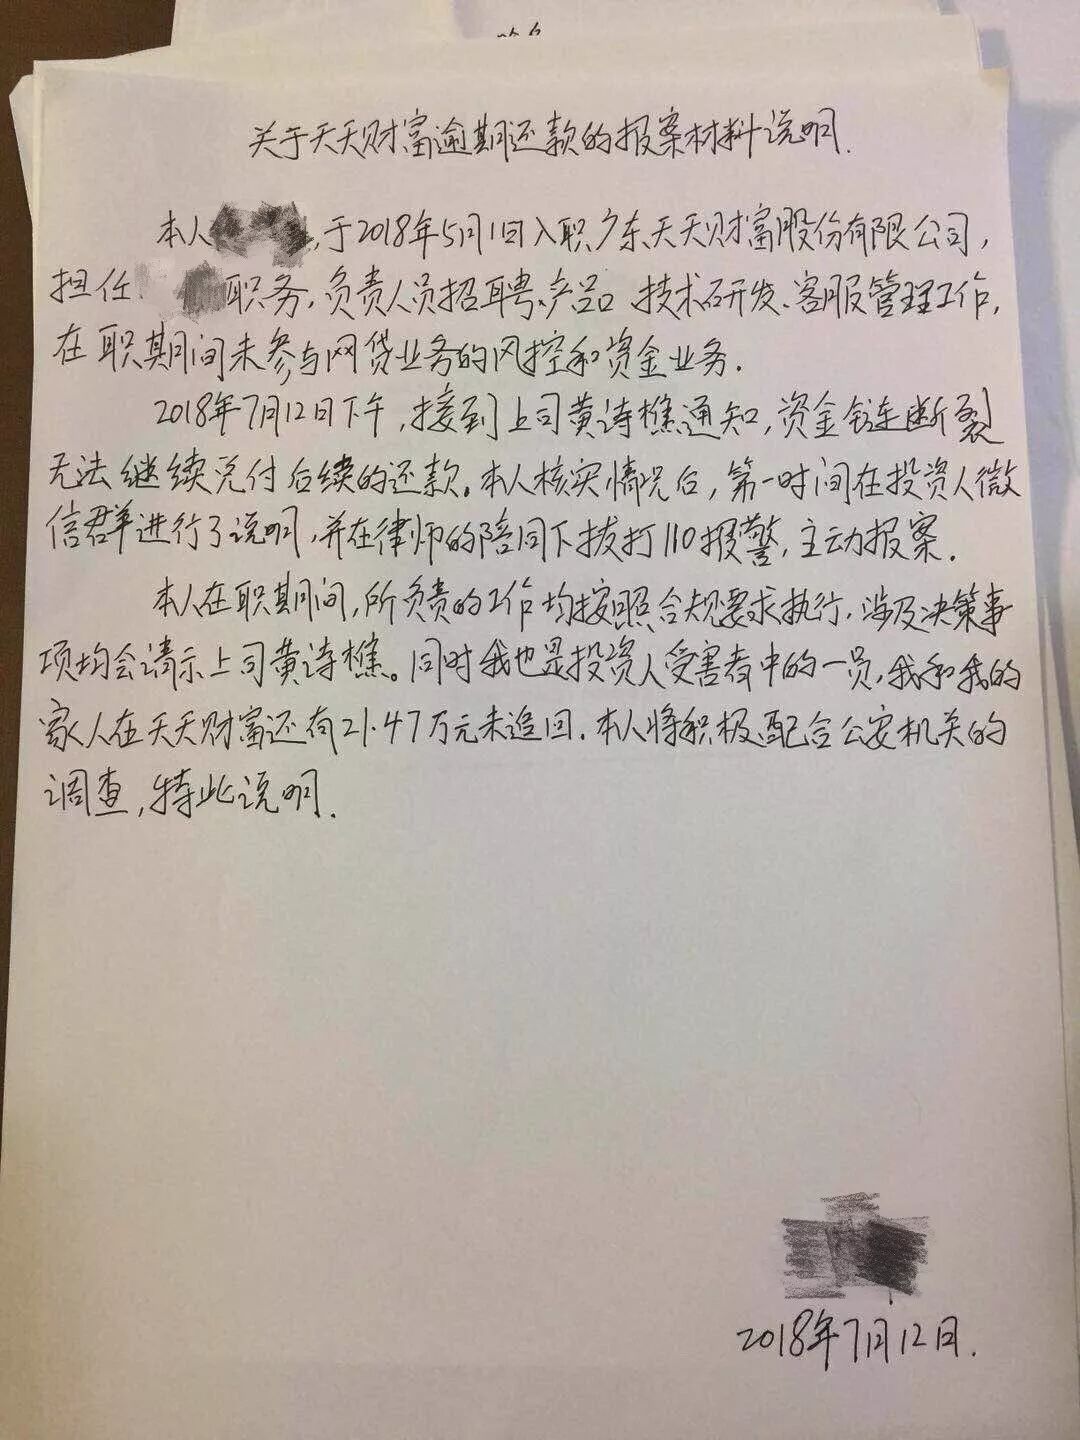 关于天天财富逾期还款的报案材料说明.
本人，于2018年5月1日入职广东天天财富股份有限公司，
担任职务，负责人员招聘、产品、技术研发、客服管理工作，
在职期间未参与网贷业务的风控和资金业务.
2018年7月12日下午，接到上司黄诗樵通知，资金链断裂
无法继续兑付后续的还款。本人核实情况后，第一时间在投资人微
信群进行了说明，并在律师的陪同下拨打110报警，主动报案.
本人在职期间，所负责的工作均按照合规要求执行，涉及决策事
项均会请示上司黄诗樵。同时我也是投资人受害者中的一员，我和我的
家人在天天财富还有21.47万元未追回.本人将积极配合公安机关的
调查，特此说明.
2018年7月12日.